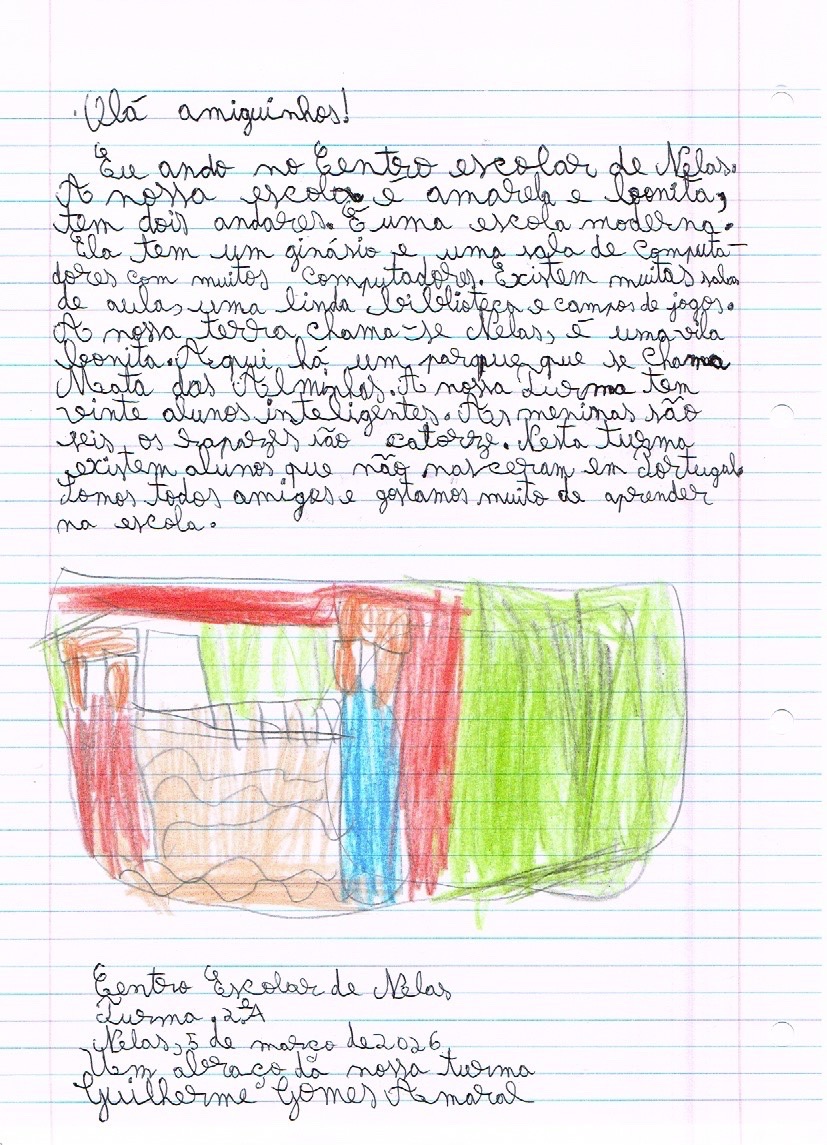 Olá amiguinhos!
Eu ando no Centro escolar de Nelas.
A nossa escola é amarela e bonita,
tem dois andares. É uma escola moderna.
Ela tem um ginásio e uma sala de computa-
dores com muitos computadores. Existem muitas salas
de aula, uma linda biblioteca e campos de jogos.
A nossa terra chama-se Nelas, é uma vila
bonita. Aqui há um parque que se chama
Mata das Alminhas. A nossa turma tem
vinte alunos inteligentes. As meninas são
seis, os rapazes são catorze. Nesta turma
existem alunos que não nasceram em Portugal.
Somos todos amigos e gostamos muito de aprender
na escola.
Centro Escolar de Nelas
Turma 2ºA
Nelas, 5 de março de 2026
Um abraço da nossa turma
Guilherme Gomes Amaral